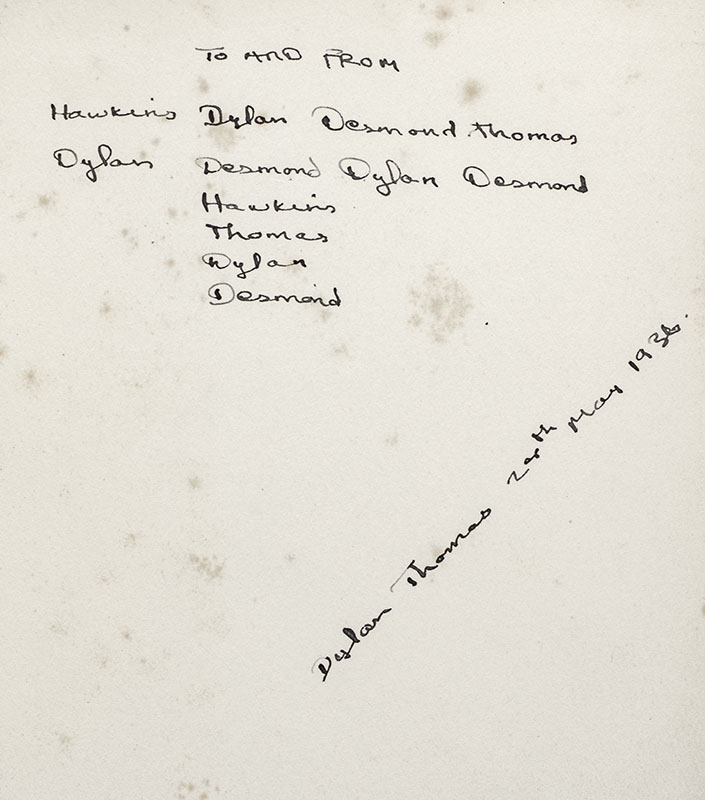 TO AND FROM
Hawkins Dylan Desmond Thomas
Dylan Desmond Dylan Desmond
Hawkins
Thomas
Dylan
Desmond
Dylan Thomas May 1936.